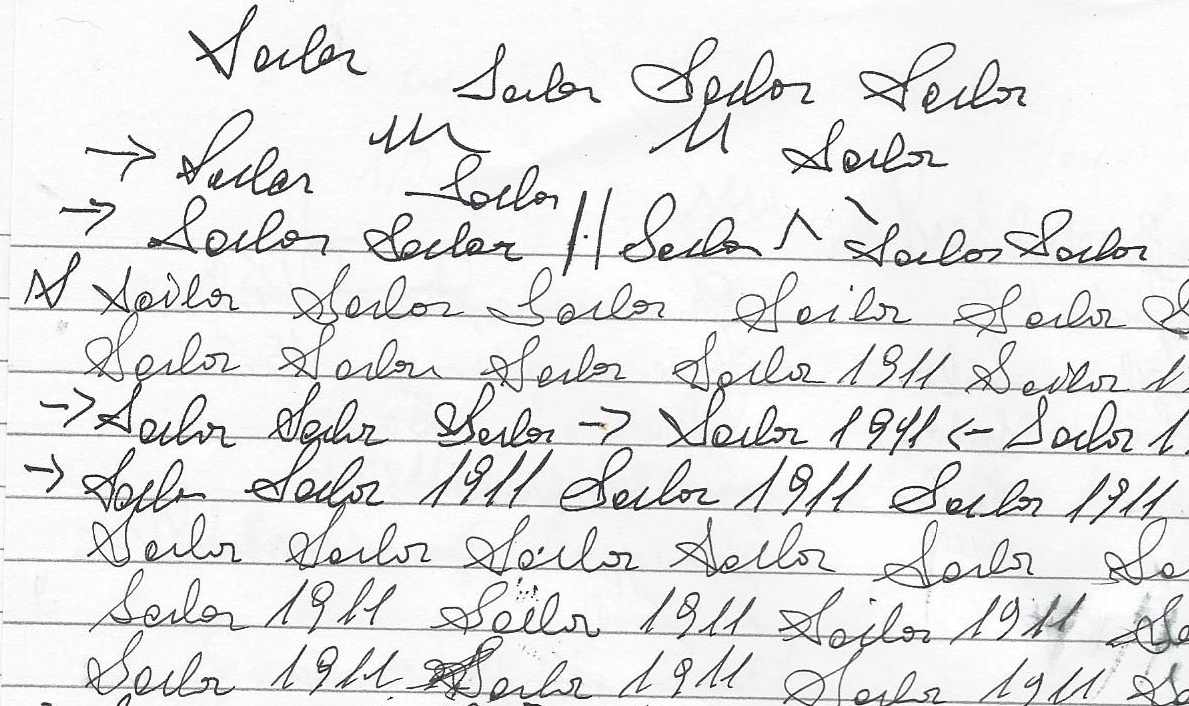 Sailor
Sailor Sailor Sailor
→ Sailor Sailor Sailor
→ Sailor Sailor || Sailor Sailor Sailor
S Sailor Sailor Sailor Sailor Sailor
Sailor Sailor Sailor Sailor 1911 Sailor 1
→ Sailor Sailor Sailor → Sailor 1911 ← Sailor 1
→ Sailor Sailor 1911 Sailor 1911 Sailor 1911
Sailor Sailor Sailor Sailor Sailor Sa
Sailor 1911 Sailor 1911 Sailor 1911 Sa
Sailor 1911 Sailor 1911 Sailor 1911 Sa